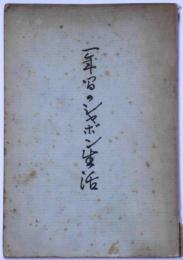 一年間のシャボン生活